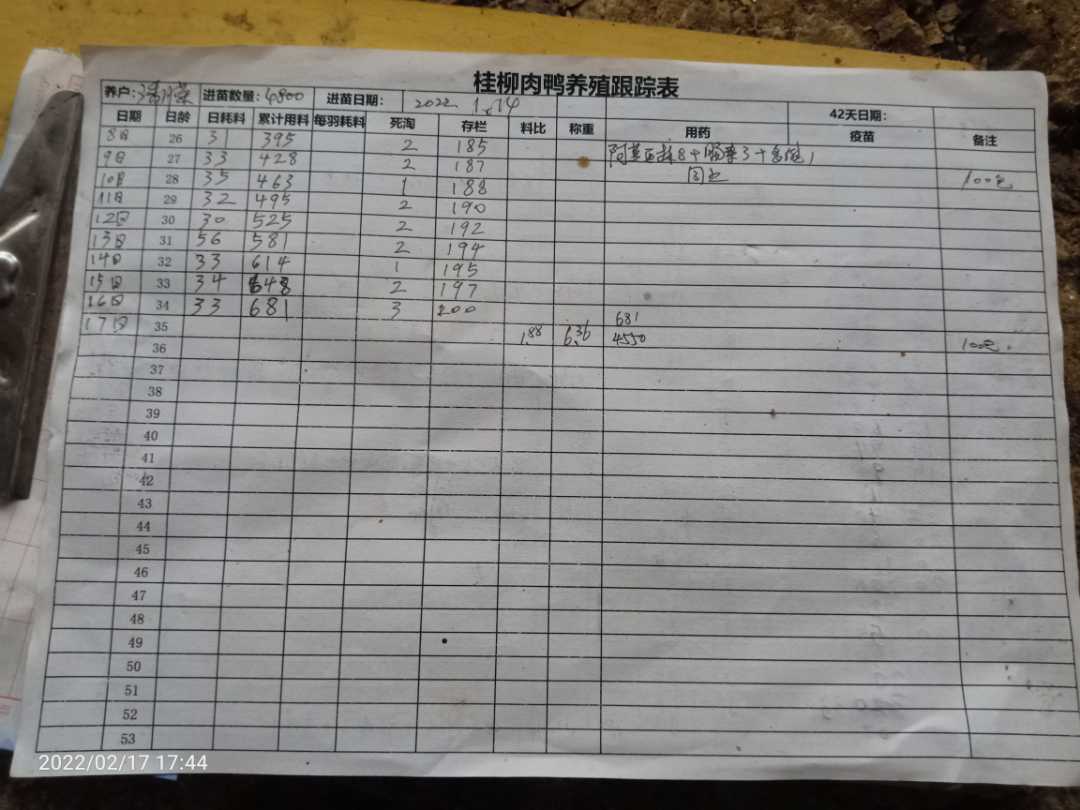 桂柳肉鸭养殖跟踪表
养户: 进苗数量: 4800 进苗日期: 2022 1.14 42天日期:
日期 日龄 日耗料 累计用料 每羽耗料 死淘 存栏 料比 称重 用药 疫苗 备注
8日 26 31 395 2 185 阿莫西林8+肠 3+
9日 27 33 428 2 187
10日 28 35 463 1 188 100元
11日 29 32 495 2 190
12日 30 30 525 2 192
13日 31 56 581 2 194
14日 32 33 614 1 195
15日 33 34 648 2 197
16日 34 33 681 3 200
17日 35 681
36 1.88 6.36 4550 100元.
37
38
39
40
41
42
43
44
45
46
47
48
49
50
51
52
53
2022/02/17 17:44